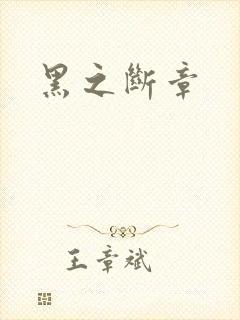 黑之斷章
王章斌